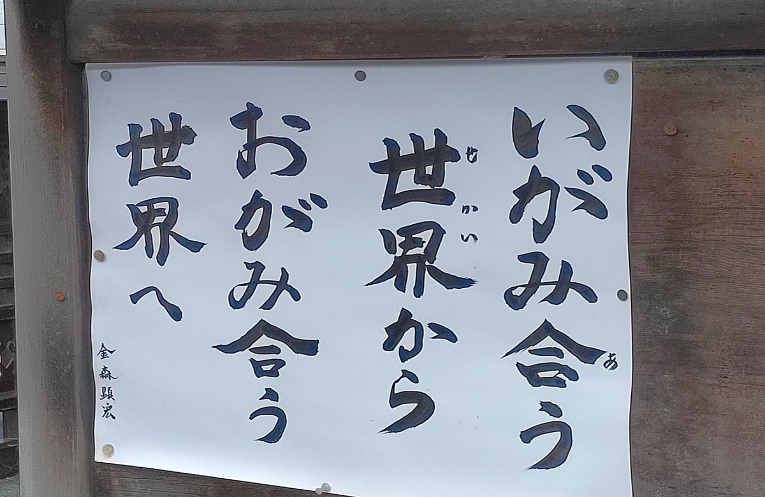 いがみ合う
世界から
おがみ合う
世界へ
金森顕宏
あ
せかい